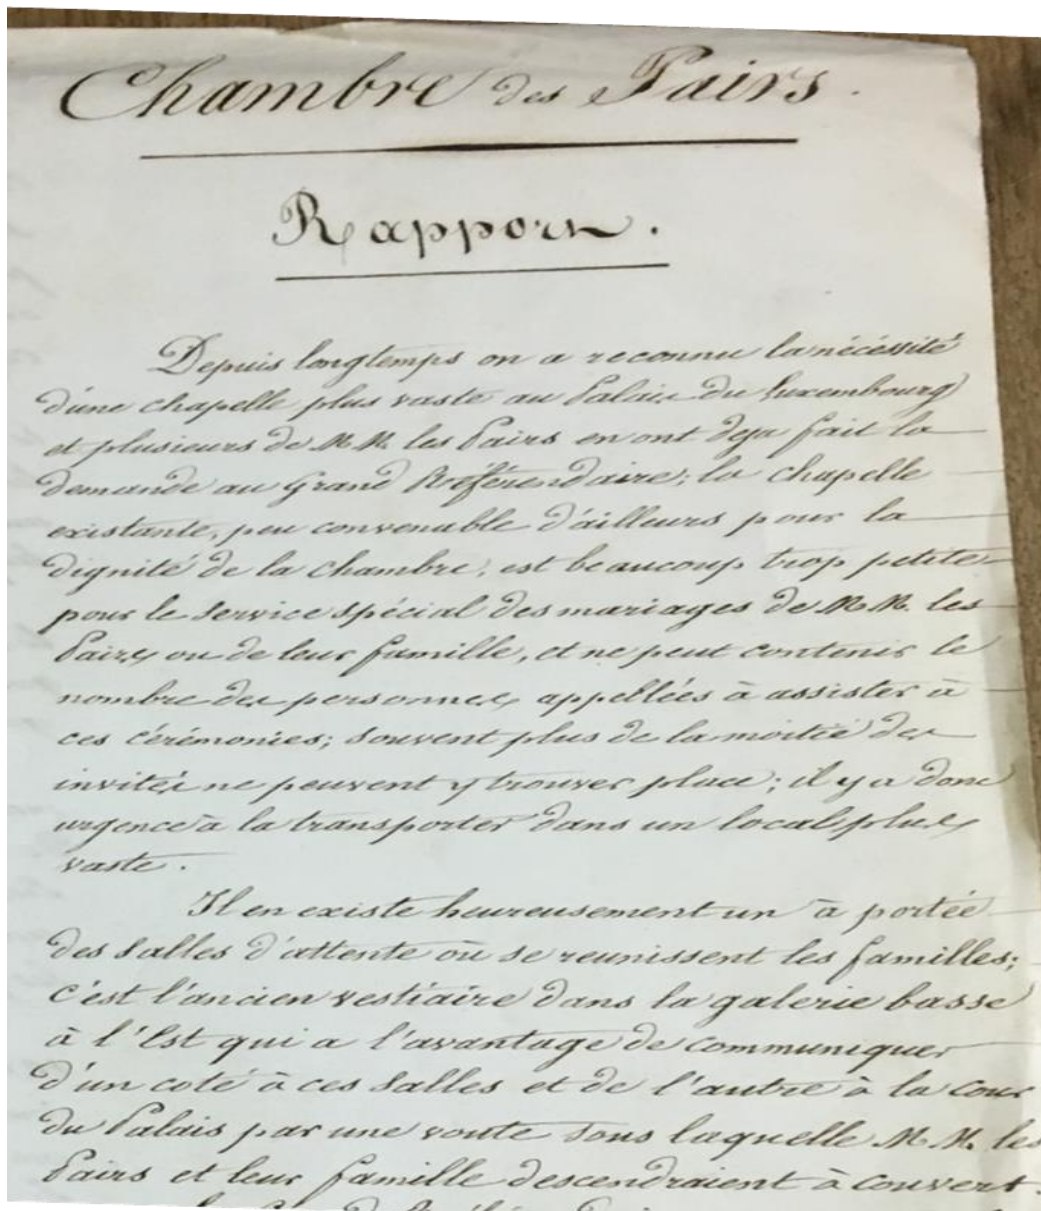 Chambre des Pairs.
Rapport.
Depuis longtemps on a reconnu la nécéssité
d'une chapelle plus vaste au Palais du Luxembourg
et plusieurs de M.M. les Pairs en ont deja fait la
demande au Grand Référendaire; la chapelle
existante, peu convenable d'ailleurs pour la
dignité de la chambre, est beaucoup trop petite
pour le service spécial des mariages de M.M. les
Pairs ou de leur famille, et ne peut contenir le
nombre des personnes appellées à assister à
ces cérémonies; souvent plus de la moitié des
invités ne peuvent y trouver place; il y a donc
urgence à la transporter dans un local plus
vaste.
Il en existe heureusement un à portée
des salles d'attente où se reunissent les familles;
c'est l'ancien vestiaire dans la galerie basse
à l'Est qui a l'avantage de communiquer
d'un coté à ces salles et de l'autre à la cour
du Palais par une voute sous laquelle M.M. les
Pairs et leur famille descendraient à couvert.